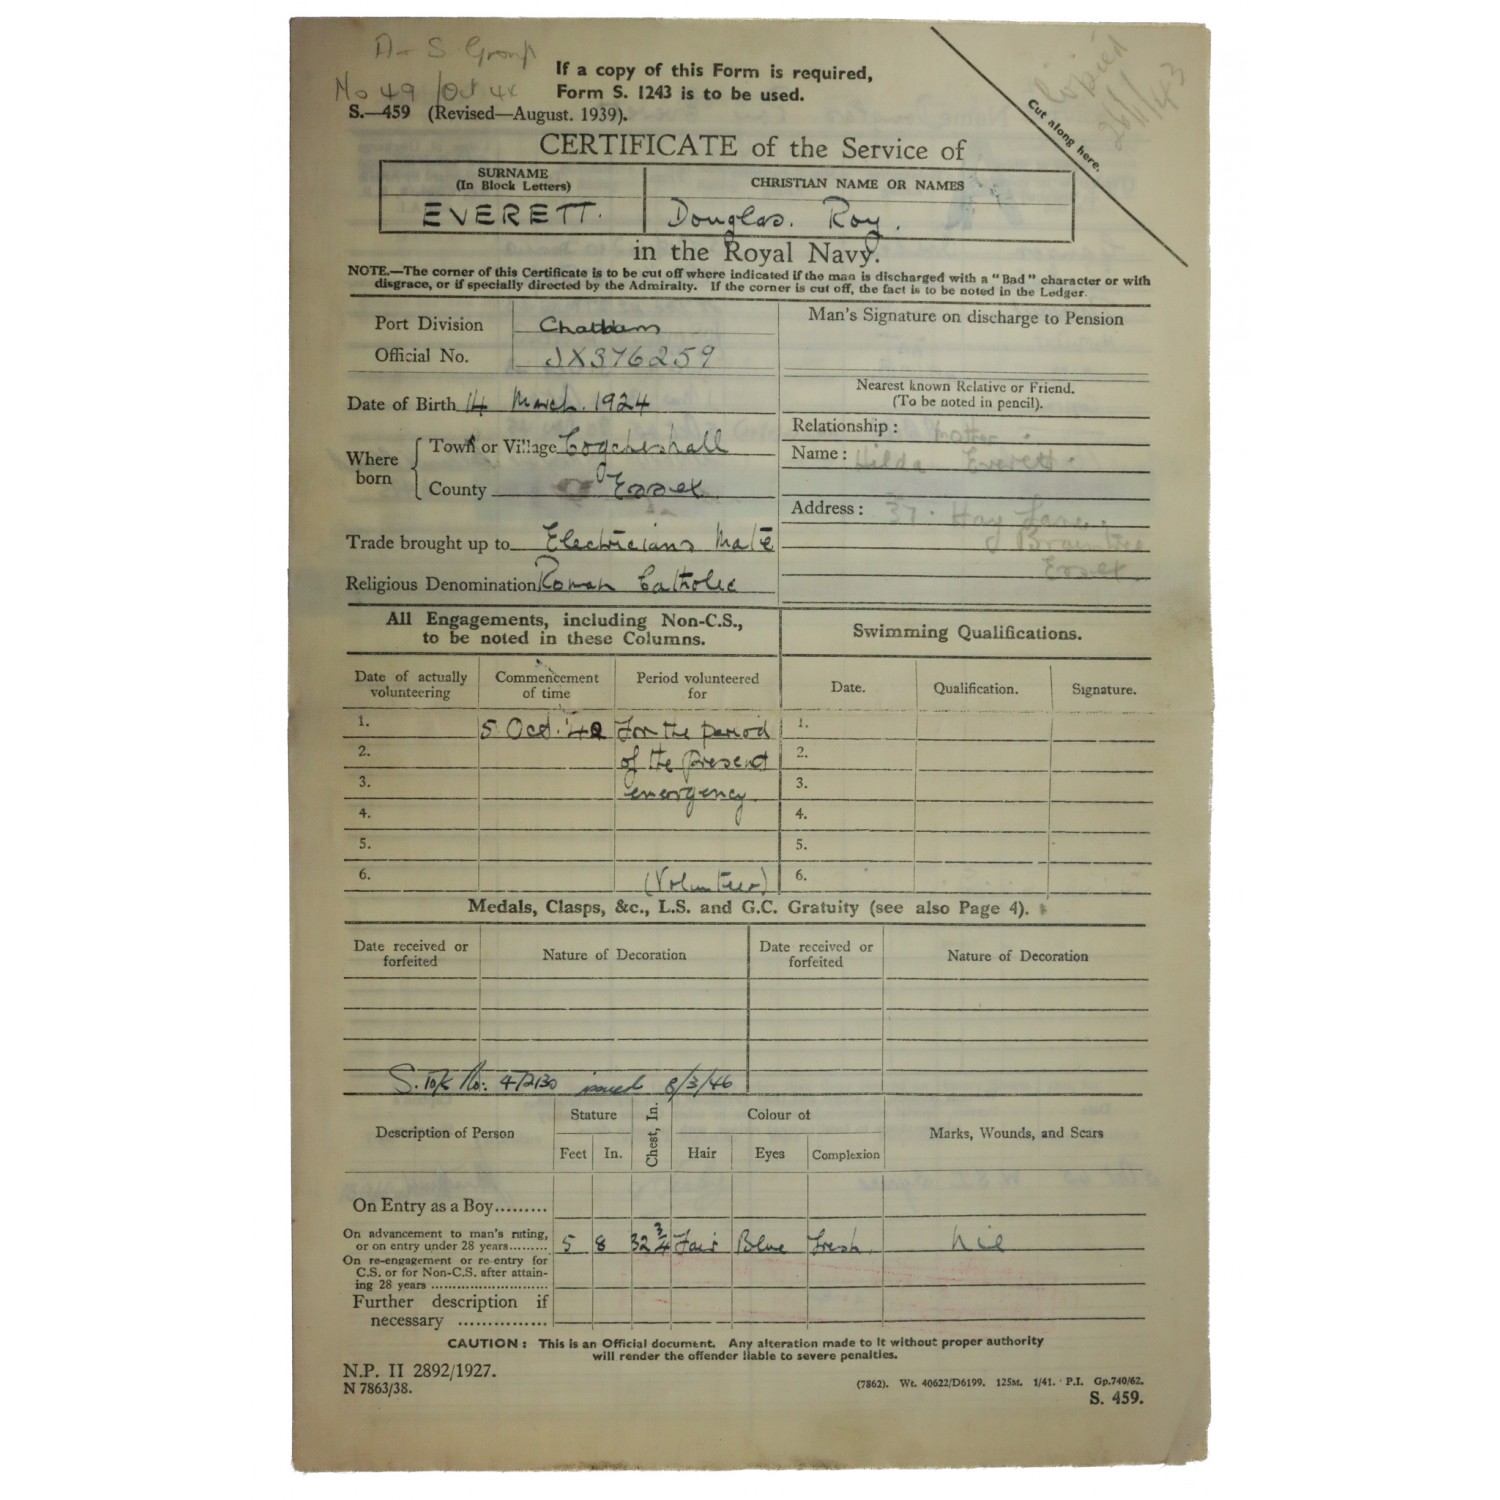 A - S Group
No 49 /Oct 44
If a copy of this Form is required,
Form S. 1243 is to be used.
S.—459 (Revised—August. 1939).
Copied
Cut along here.
CERTIFICATE of the Service of
SURNAME
(In Block Letters)
CHRISTIAN NAME OR NAMES
EVERETT.
Douglas. Roy.
in the Royal Navy.
NOTE.—The corner of this Certificate is to be cut off where indicated if the man is discharged with a "Bad" character or with
disgrace, or if specially directed by the Admiralty. If the corner is cut off, the fact is to be noted in the Ledger.
Port Division Chatham
Official No. JX376259
Man's Signature on discharge to Pension
Date of Birth 14 March. 1924
Where born
Town or Village Coggeshall
County Essex.
Trade brought up to Electricians Mate
Religious Denomination Roman Catholic
Nearest known Relative or Friend.
(To be noted in pencil).
Relationship : Mother.
Name : Hilda Everett.
Address : 37. Hay Lane.
Braintree
Essex.
All Engagements, including Non-C.S.,
to be noted in these Columns.
Swimming Qualifications.
Date of actually volunteering
Commencement of time
Period volunteered for
Date.
Qualification.
Signature.
1. 5 Oct. '42 For the period 1.
2. of the present 2.
3. emergency. 3.
4. 4.
5. 5.
6. (Volunteer) 6.
Medals, Clasps, &c., L.S. and G.C. Gratuity (see also Page 4).
Date received or forfeited
Nature of Decoration
Date received or forfeited
Nature of Decoration
No: 4/2130 issued 8/3/46
Description of Person
Stature
Feet
In.
Chest, In.
Colour of
Hair
Eyes
Complexion
Marks, Wounds, and Scars
On Entry as a Boy.........
On advancement to man's rating,
or on entry under 28 years......... 5 8 32 3/4 Fair Blue Fresh. Nil
On re-engagement or re-entry for
C.S. or for Non-C.S. after attain-
ing 28 years ...........................
Further description if
necessary ...............
CAUTION : This is an Official document. Any alteration made to it without proper authority
will render the offender liable to severe penalties.
N.P. II 2892/1927.
N 7863/38.
(7862). Wt. 40622/D6199. 125M. 1/41. P.I. Gp.740/62.
S. 459.